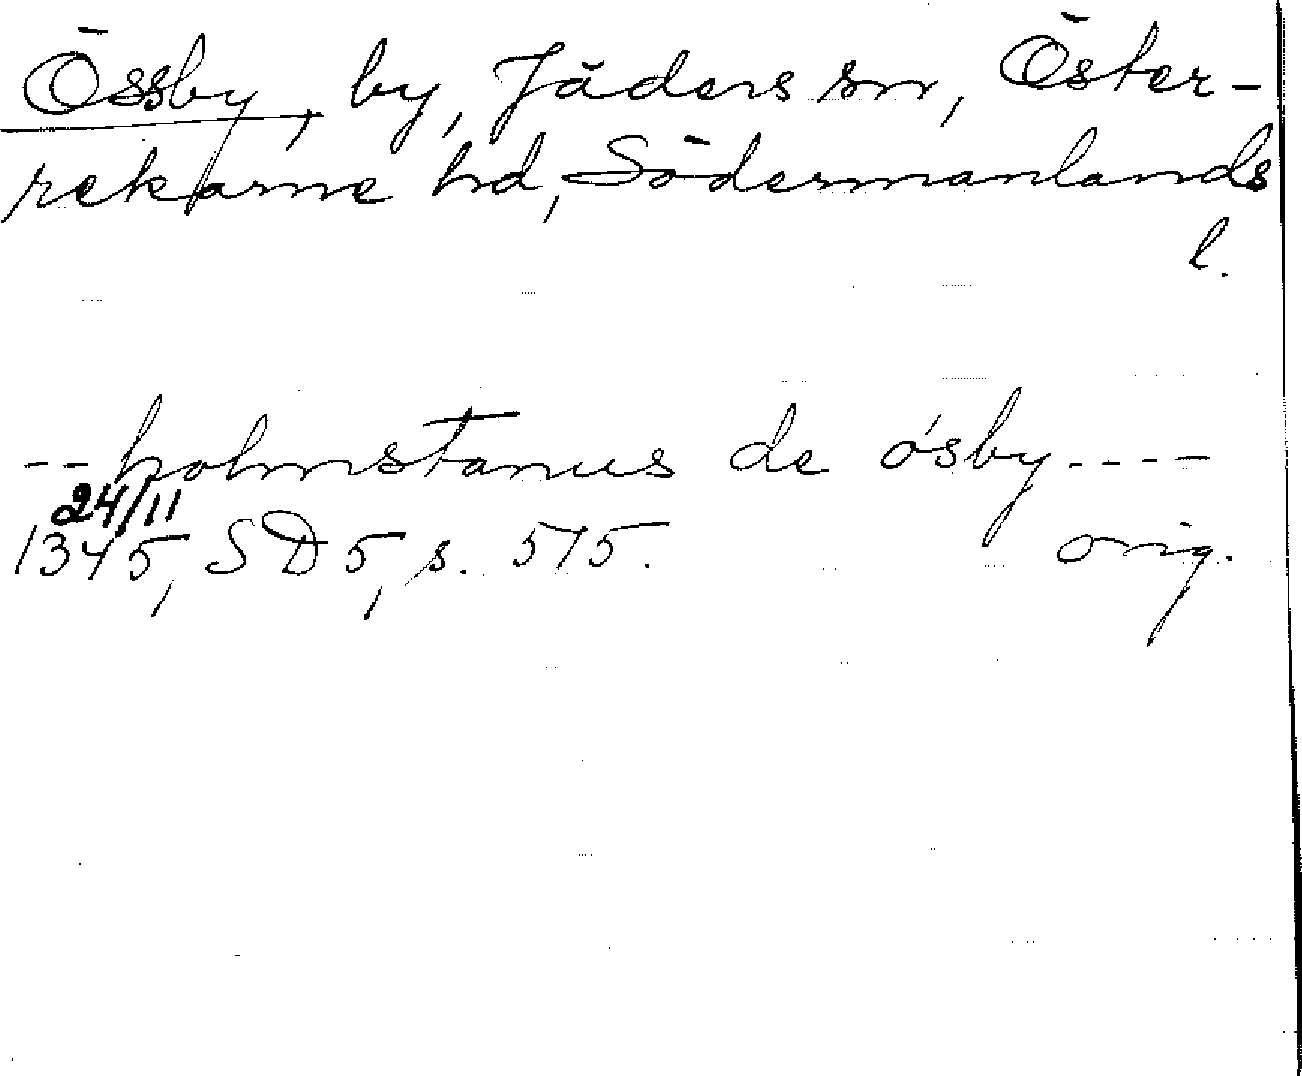 Össby, by, Jäders sn, Öster-
rekarne hd, Södermanlands
l.
--holmstanus de ósby----
24/11
1345, SD 5, s. 575. orig.